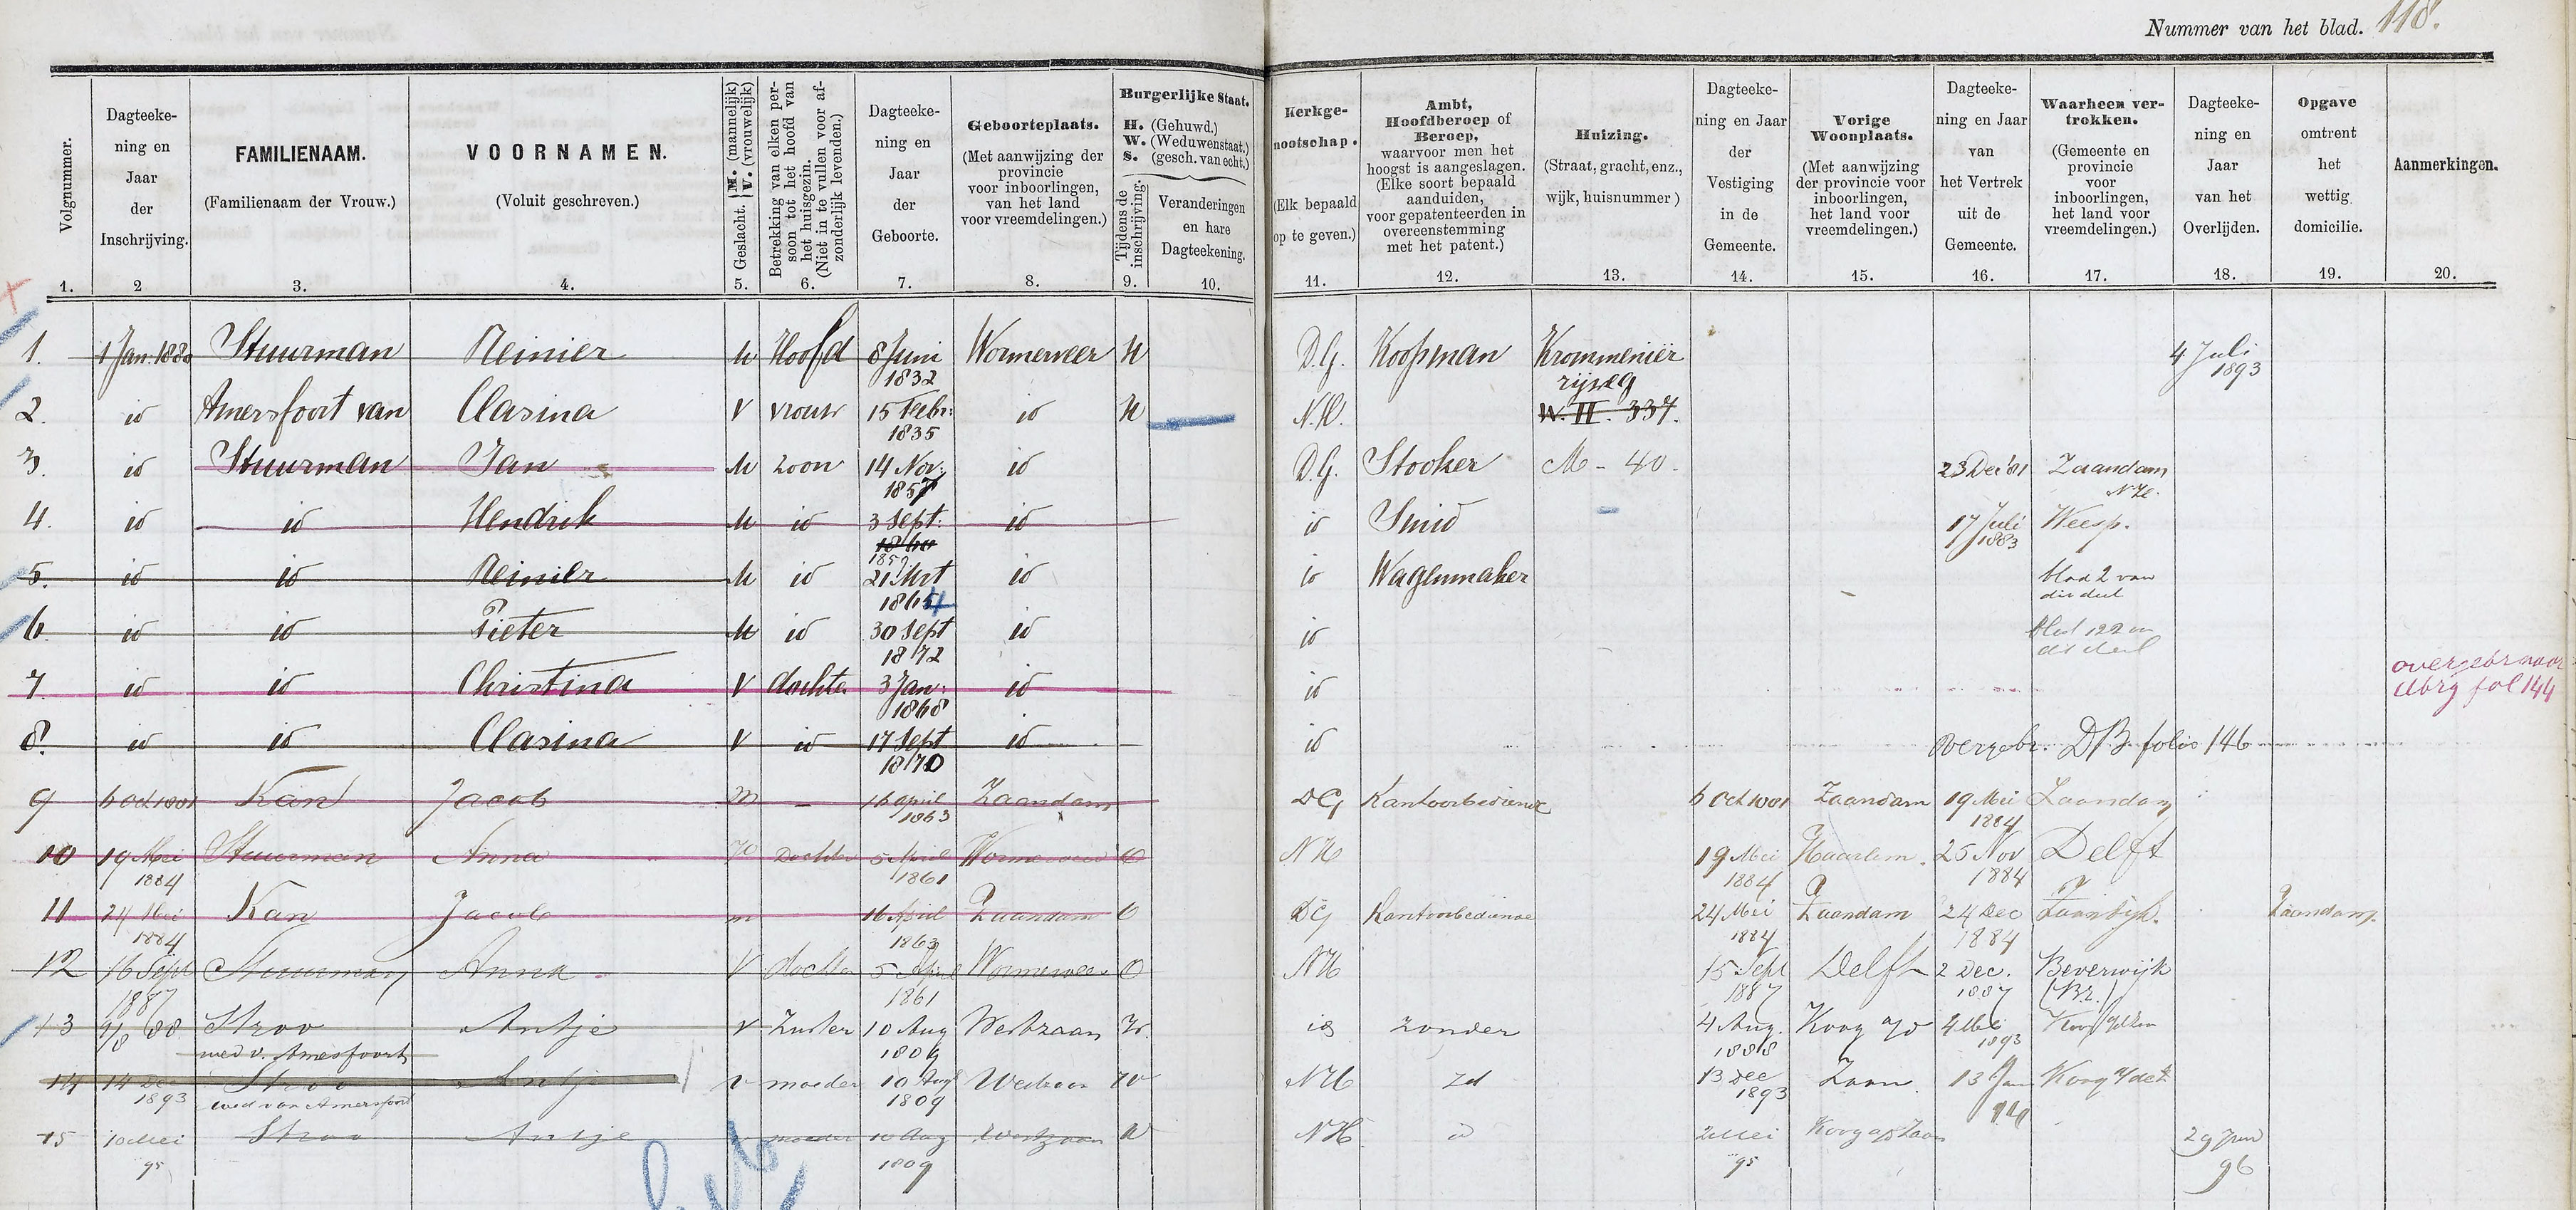 Nummer van het blad. 118.
Volgnummer. 1.
Dagteekening en Jaar der Inschrijving. 2
FAMILIENAAM. (Familienaam der Vrouw.) 3.
VOORNAMEN. (Voluit geschreven.) 4.
Geslacht. M. (mannelijk) V. (vrouwelijk) 5.
Betrekking van elken persoon tot het hoofd van het huisgezin. (Niet in te vullen voor afzonderlijk levenden.) 6.
Dagteekening en Jaar der Geboorte. 7.
Geboorteplaats. (Met aanwijzing der provincie voor inboorlingen, van het land voor vreemdelingen.) 8.
Burgerlijke Staat. H. (Gehuwd.) W. (Weduwenstaat.) S. (gesch. van echt.)
Tijdens de inschrijving. 9.
Veranderingen en hare Dagteekening. 10.
Kerkgenootschap. (Elk bepaald op te geven.) 11.
Ambt, Hoofdberoep of Beroep, waarvoor men het hoogst is aangeslagen. (Elke soort bepaald aanduiden, voor gepatenteerden in overeenstemming met het patent.) 12.
Huizing. (Straat, gracht, enz., wijk, huisnummer) 13.
Dagteekening en Jaar der Vestiging in de Gemeente. 14.
Vorige Woonplaats. (Met aanwijzing der provincie voor inboorlingen, het land voor vreemdelingen.) 15.
Dagteekening en Jaar van het Vertrek uit de Gemeente. 16.
Waarheen vertrokken. (Gemeente en provincie voor inboorlingen, het land voor vreemdelingen.) 17.
Dagteekening en Jaar van het Overlijden. 18.
Opgave omtrent het wettig domicilie. 19.
Aanmerkingen. 20.
1. 1 Jan: 1880 Stuurman Reinier M Hoofd 8 Juni 1832 Wormerveer H D.G. Koopman Krommeniër rijweg 4 Juli 1893
2. id Amersfoort van Clasina V vrouw 15 Febr: 1835 id H N.H. W. II. 337.
3. id Stuurman Jan M zoon 14 Nov: 1857 id D.G. Stooker M - 40. 23 Dec '81 Zaandam N.H.
4. id id Hendrik M id 3 Sept: 1860 1859 id id Smid 17 Juli 1883 Weesp.
5. id id Reinier M id 21 Mrt 1864 id id Wagenmaker blad 2 van dit deel
6. id id Pieter M id 30 Sept 1872 id id blad 122 van dit deel
7. id id Christina V dochter 3 Jan: 1868 id id overgebr naar dbrg fol 144
8. id id Clasina V id 17 Sept 1870 id id Overgebr. DB folio 146
9 6 Oct 1881 Kan Jacob M - 16 april 1863 Zaandam DG Kantoorbediende 6 Oct 1881 Zaandam 19 Mei 1884 Zaandam
10 19 Mei 1884 Stuurman Anna V Dochter 5 April 1861 Wormerveer O NH 19 Mei 1884 Haarlem. 25 Nov 1884 Delft
11 24 Mei 1884 Kan Jacob m 16 April 1863 Zaandam O DG Kantoorbediende 24 Mei 1884 Zaandam 24 Dec 1884 Zaandijk. Zaandam.
12 16 Sept 1887 Stuurman Anna V dochter 5 April 1861 Wormerveer O NH 15 Sept 1887 Delft 2 Dec. 1887 Beverwijk (Br.)
13 9/8 88 Stroo wed v. Amesfoort Antje V Zuster 10 Aug 1809 Westzaan W. id zonder 4 Aug. 1888 Koog a/d Zaan 4 Mei 1893 Koog a/d Zaan
14 14 Dec 1893 Stroo wed van Amersfoort Antje v moeder 10 Aug 1809 Westzaan W NH zd 13 Dec 1893 13 Jan Koog a/d Z
15 10 Mei 95 Stroo Antje v moeder 10 Aug 1809 Westzaan W NH id 2 Mei 95 Koog a/d Zaan 29 Juni 96